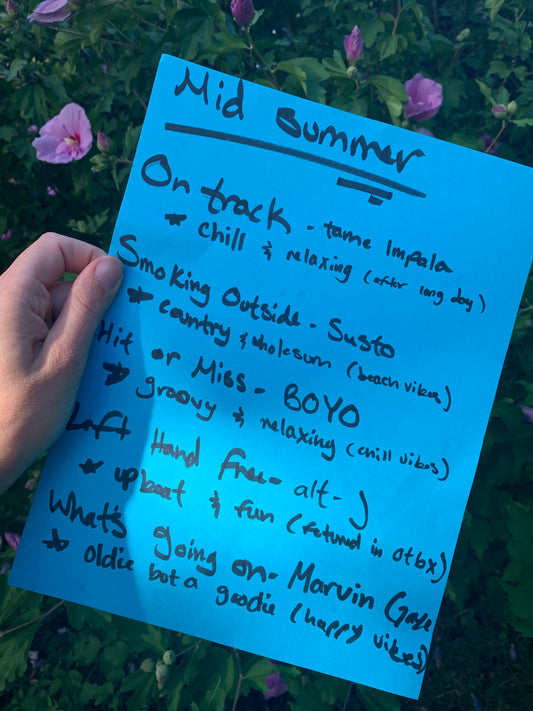 Mid summer
On track - tame Impala
* chill & relaxing (after long day)
Smoking Outside - Susto
* country & wholesum (beach vibes)
Hit or Miss - BOYO
* groovy & relaxing (chill vibes)
Left Hand free - alt-J
* upbeat & fun (fetured in otbx)
What's going on - Marvin Gaye
* oldie but a goodie (happy vibes)